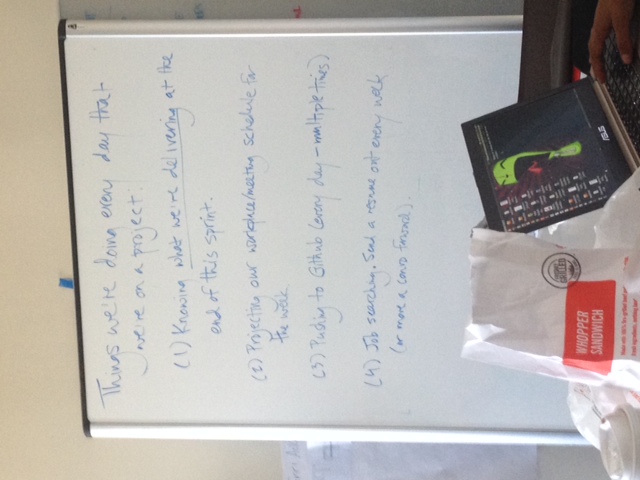 Things we're doing every day that
we're on a project:
(1) Knowing what we're delivering at the
end of this sprint.
(2) Projecting our workplace/meeting schedule for
the week.
(3) Pushing to Github (every day - multiple times)
(4) Job searching. Send a resume out every week
(or move a convo forward).
FLAME GRILLED
WHOPPER
SANDWICH
Made with 100% fire-grilled beef
fresh ingredients, nothing
ASUS